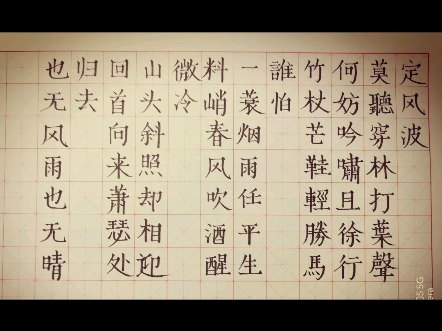 定风波
莫聽穿林打葉聲
何妨吟嘯且徐行
竹杖芒鞋輕勝馬
誰怕
一蓑烟雨任平生
料峭春风吹酒醒
微冷
山头斜照却相迎
回首向来萧瑟处
归去
也无风雨也无晴